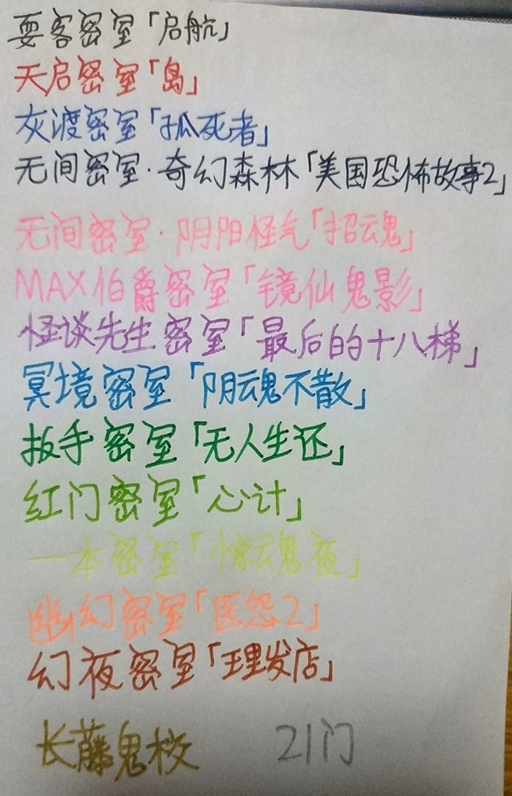 耍客密室「启航」
天启密室「岛」
灰渡密室「孤死者」
无间密室·奇幻森林「美国恐怖故事2」
无间密室·阴阳怪气「招魂」
MAX伯爵密室「镜仙鬼影」
怪谈先生密室「最后的十八梯」
冥境密室「阴魂不散」
扳手密室「无人生还」
红门密室「心计」
一本密室「惊魂夜」
幽幻密室「医怨2」
幻夜密室「理发店」
长藤鬼校 21门